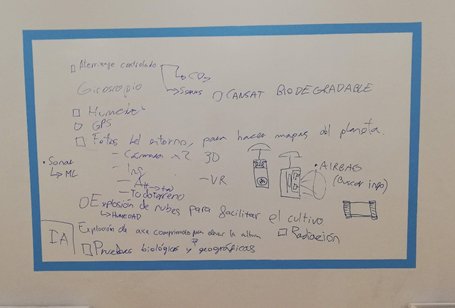 Aterrizaje controlado
CO2
Sonar
CANSAT BIODEGRADABLE
Giroscopio
Humedad
GPS
Fotos del entorno, para hacer mapas del planeta.
- Cámara x2 3D
• Sonar
ML
- VR
• AIRBAG
(Buscar info)
- Todoterreno
Explosión de nubes para facilitar el cultivo
HUMEDAD
Radiación
IA
Explosión de aire comprimido para
Pruebas biológicas y geográficas